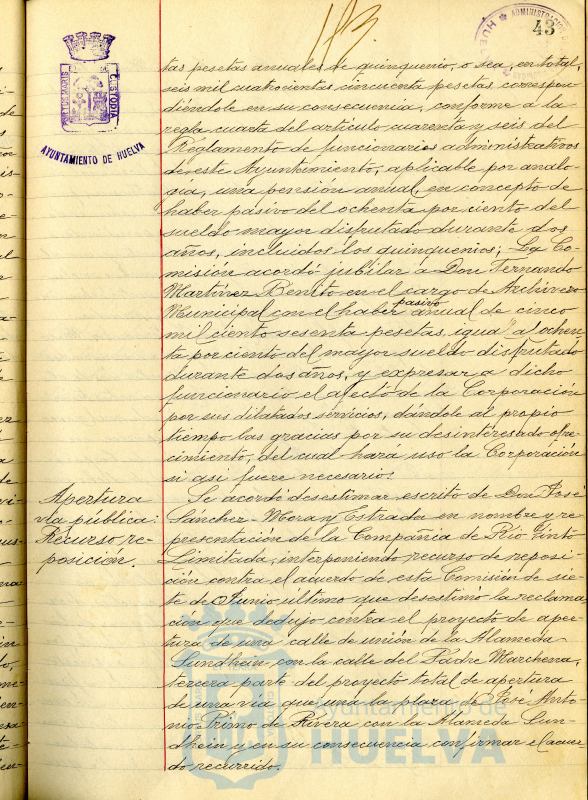 43
PORTUS MARIS
CUSTODIA
AYUNTAMIENTO DE HUELVA
tas pesetas anuales de quinquenio, o sea, en total,
seis mil cuatrocientas cincuenta pesetas correspon-
diéndole en su consecuencia, conforme a la
regla cuarta del artículo cuarenta y seis del
Reglamento de funcionarios administrativos
de este Ayuntamiento, aplicable por analo-
gia, una pensión anual en concepto de
haber pasivo del ochenta por ciento del
sueldo mayor disfrutado durante dos
años, incluidos los quinquenios; La Co-
misión acordó jubilar a Don Fernando
Martínez Benito en el cargo de Archivero
Municipal con el haber pasivo anual de cinco
mil ciento sesenta pesetas, igual al ochen-
ta por ciento del mayor sueldo disfrutado
durante dos años, y expresar a dicho
funcionario el afecto de la Corporación
por sus dilatados servicios, dándole al propio
tiempo las gracias por su desinteresado ofre-
cimiento, del cual hará uso la Corporación
si asi fuere necesario.
Apertura
via pública:
Recurso re-
posición.
Se acordo desestimar escrito de Don José
Sánchez Mora y Estrada en nombre y re-
presentación de la Compañia de Rio Tinto
Limitada, interponiendo recurso de reposi-
ción contra el acuerdo de esta Comisión de sie-
te de Junio último que desestimó la reclama-
ción que dedujo contra el proyecto de aper-
tura de una calle de unión de la Alameda
Sundhein con la calle del Padre Marchena,
tercera parte del proyecto total de apertura
de una via que una la plaza de José Anto-
nio Primo de Rivera con la Alameda Sun-
dhein y en su consecuencia confirmar el acuer-
do recurrido.
Ayuntamiento de
HUELVA